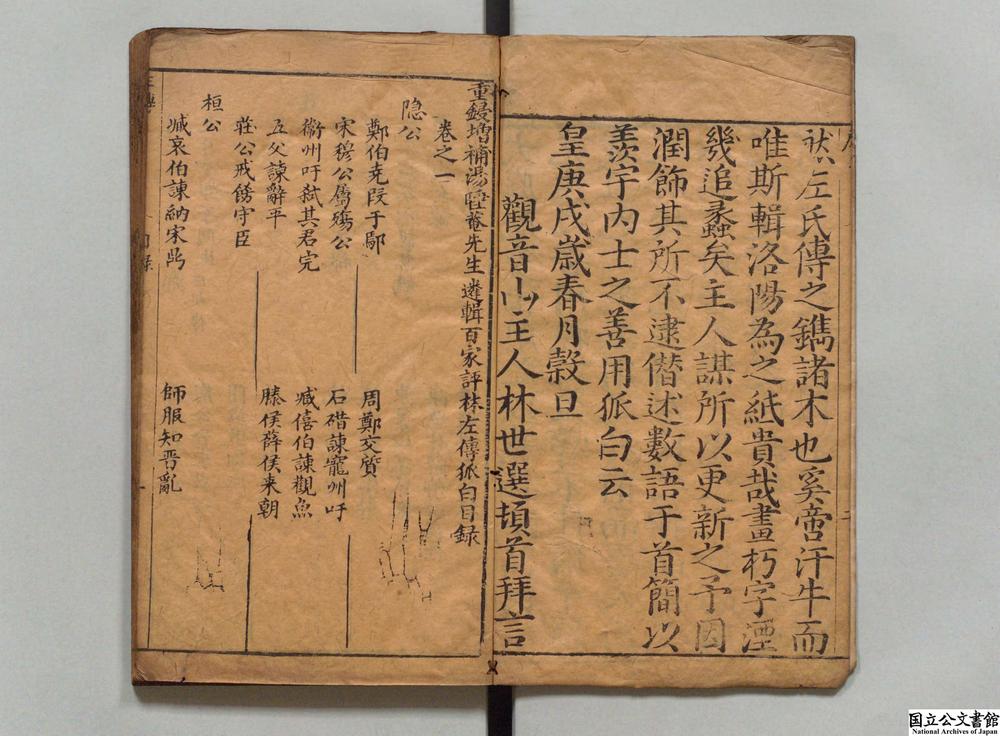 然左氏傳之鐫諸木也奚啻汗牛而
唯斯輯洛陽為之紙貴哉畫朽字湮
幾追蠡矣主人謀所以更新之予因
潤飾其所不逮僭述數語于首簡以
羨宇內士之善用狐白云
皇庚戌歲春月穀旦
觀音山主人林世選頓首拜言
重鋟增補湯睡菴先生遴輯百家評林左傳狐白目錄
卷之一
隐公
鄭伯克段于鄢
周鄭交質
宋穆公屬殤公
石碏諫寵州吁
衞州吁弒其君完
臧僖伯諫觀魚
五父諫辭平
滕侯薛侯来朝
莊公戒飭守臣
桓公
臧哀伯諫納宋
師服知晋亂
国立公文書館
National Archives of Japan